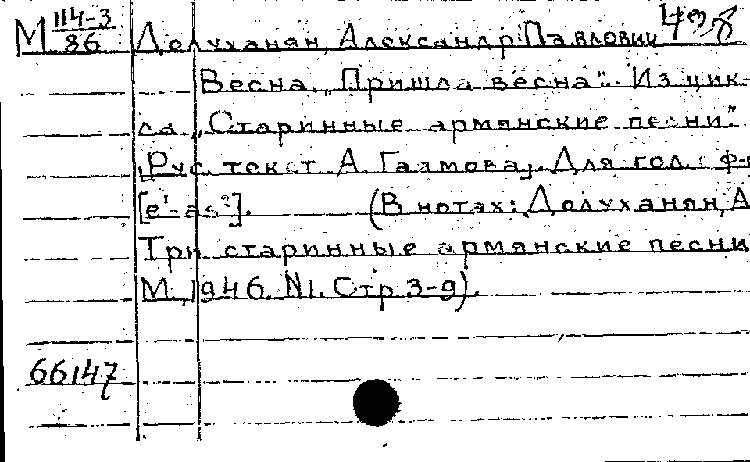 М 114-3/86 Долуханян, Александр Павлович
Весна. „Пришла весна“. Из цик-
ла „Старинные армянские песни“.
[Рус. текст А. Газмова]. Для гол. с ф-
[e¹-as²]. (В нотах: Долуханян, А
Три старинные армянские песни
М., 1946. N1. Стр. 3-9).
66147